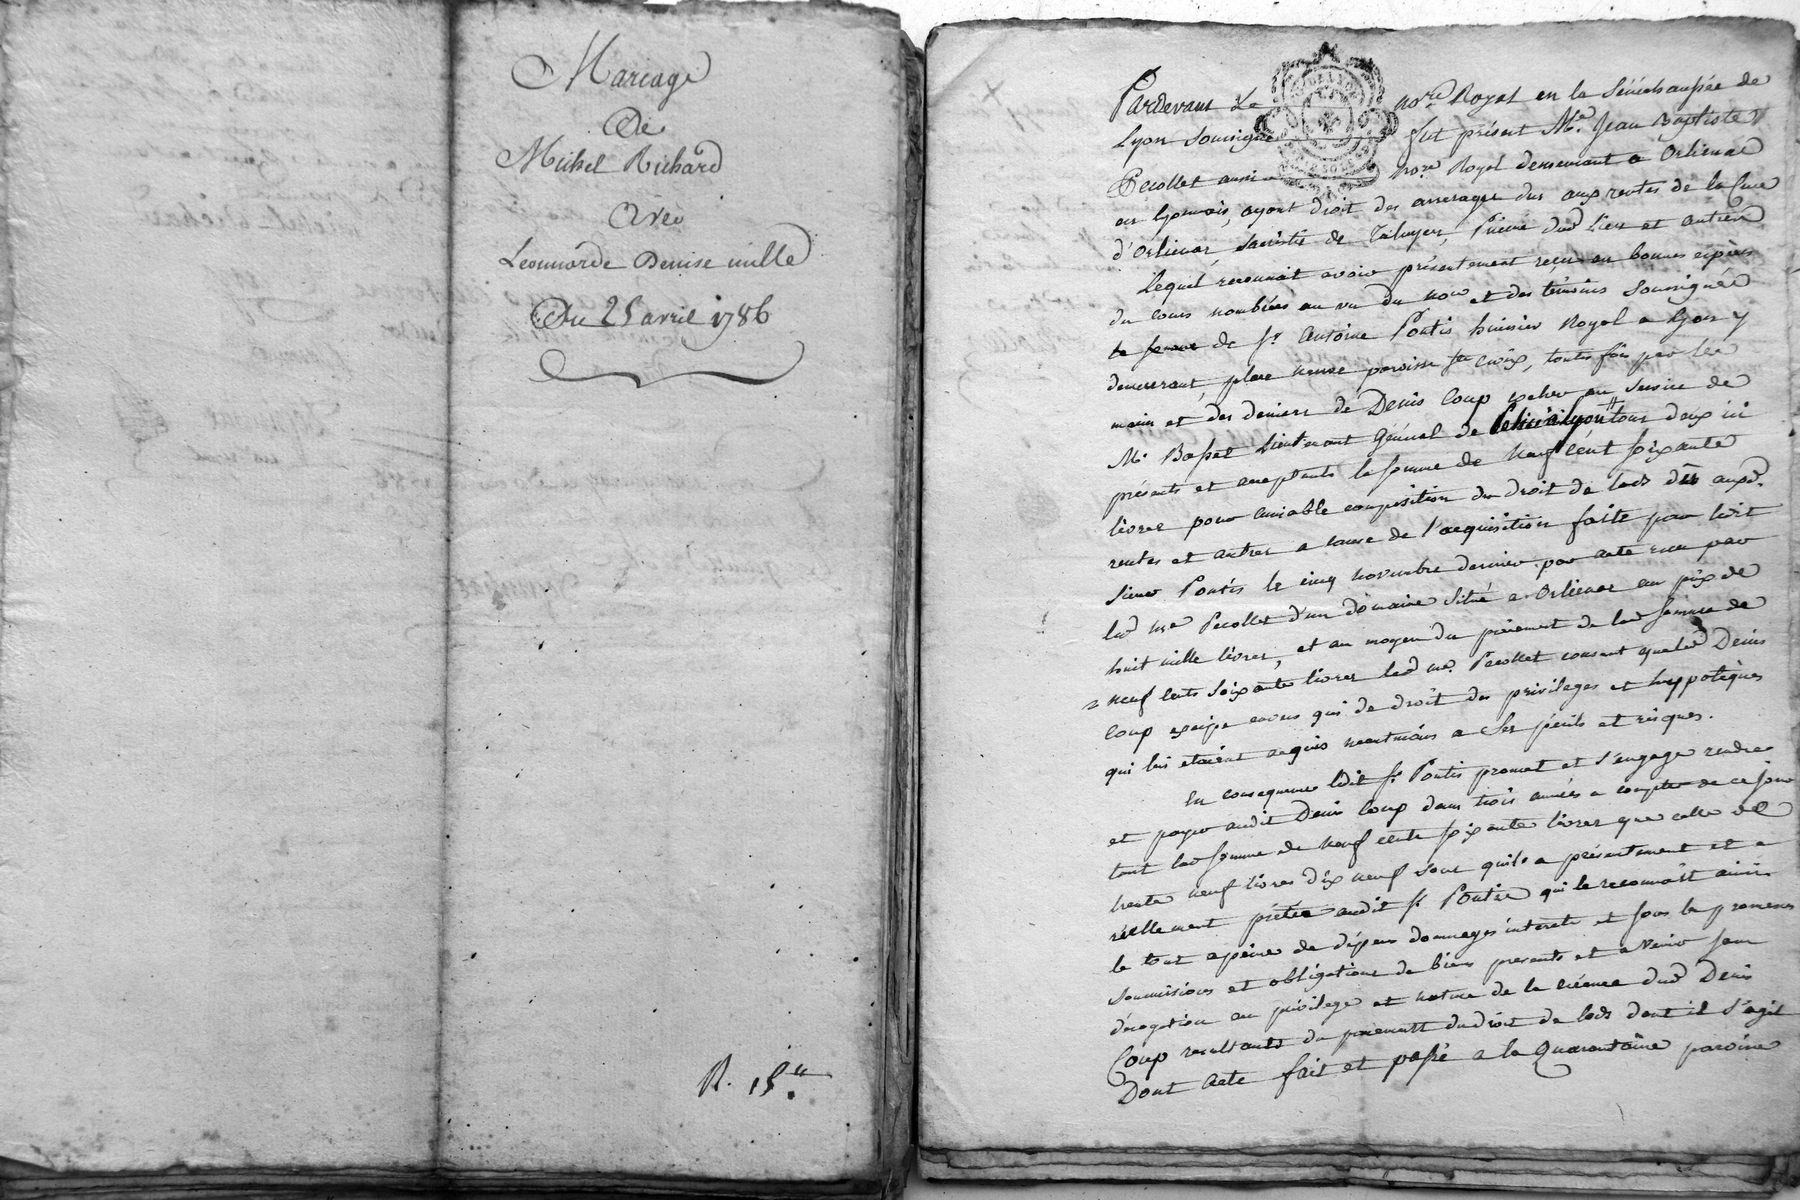 Mariage
De
Michel Richard
Avec
Leonnarde Denise mille
Du 25 avril 1786
R. 15.
Pardevant Le no.re Royal en la Sénéchaussée de
Lyon Soussigné fut présent M.e Jean Baptiste
Pecollet aussi no.re Royal demeurant a Orlienas
en lyonnois, ayant droit des arrerages dus aux rentes de la Cure
d'Orlienas, sacristie de Taluyers, Prieuré dud lieu et autres
Lequel reconnoit avoir présentement reçu en bonnes espèces
du cours nombrées au vu du no.re et des témoins Soussignés
de Sr Antoine Pontis huissier Royal a Lyon y
demeurant, place neuve paroisse Ste croix, toutes fois par les
mains et des deniers de Denis Coup cocher au Service de
Mr Basset Lieutenant Général de Police à Lyon tous deux ici
présents et acceptants la somme de neuf cent soixante
livres pour amiable composition du droit de lods dus auxd.
rentes et autres a cause de l'acquisition faite par ledit
Sieur Pontis le cinq novembre dernier par acte reçu par
led me Pecollet d'un domaine Situé a Orlienas au prix de
huit mille livres, et au moyen du paiement de lad somme de
neuf cents soixante livres led me. Pecollet consent que led Denis
Coup exerce envers qui de droit des privileges et hyppotèques
qui lui etoient acquis neantmoins a Ses périls et risques.
En consequence ledit Sr Pontis promet et s'engage rendre
et payer audit Denis Coup dans trois années a compter de ce jour
tant lad somme de neuf cents soixante livres que celle de
trente neuf livres dix neuf sous qu'il a présentement et
réellement prêtée audit Sr Pontis qui le reconnoît ainsi
le tout apeine de dépens dommages interets et sous les promesses
soumissions et obligations de biens presents et a venir sans
dérogation au privilege et nature de la créance dud Denis
Coup resultants du paiement du droit de lods dont il s'agit
Dont acte fait et passé a la Quarantaine paroisse